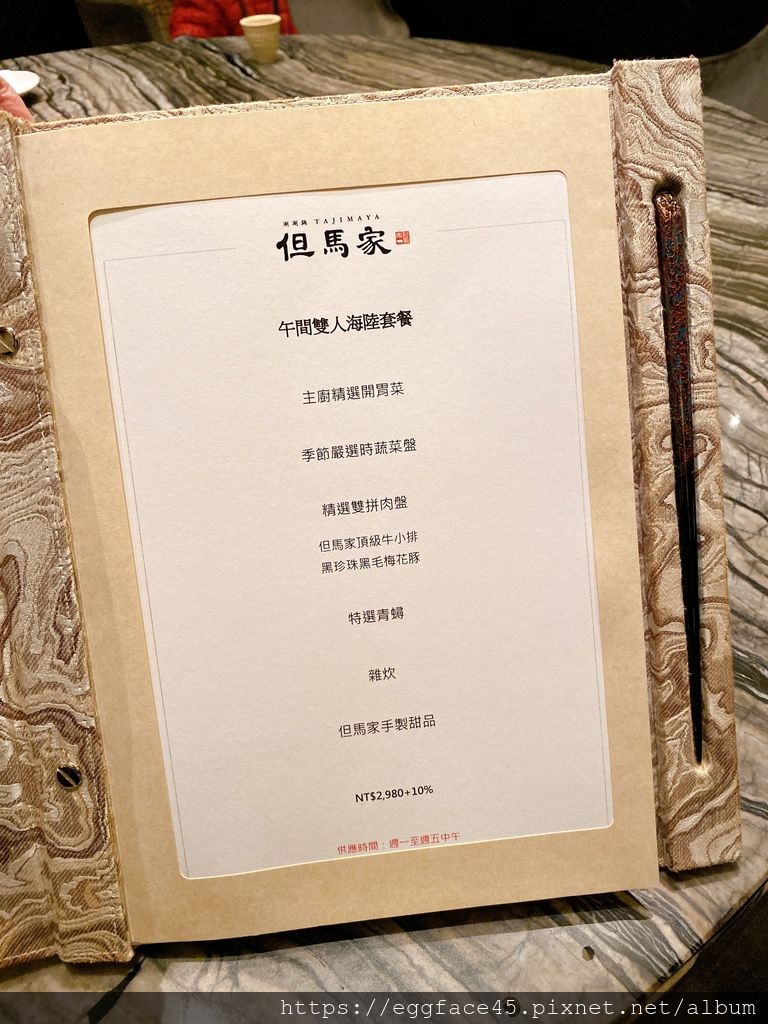 涮涮鍋 TAJIMAYA
但馬家
午間雙人海陸套餐
主廚精選開胃菜
季節嚴選時蔬菜盤
精選雙拼肉盤
但馬家頂級牛小排
黑珍珠黑毛梅花豚
特選青蟳
雜炊
但馬家手製甜品
NT$2,980+10%
供應時間：週一至週五中午
https://eggface45.pixnet.net/album